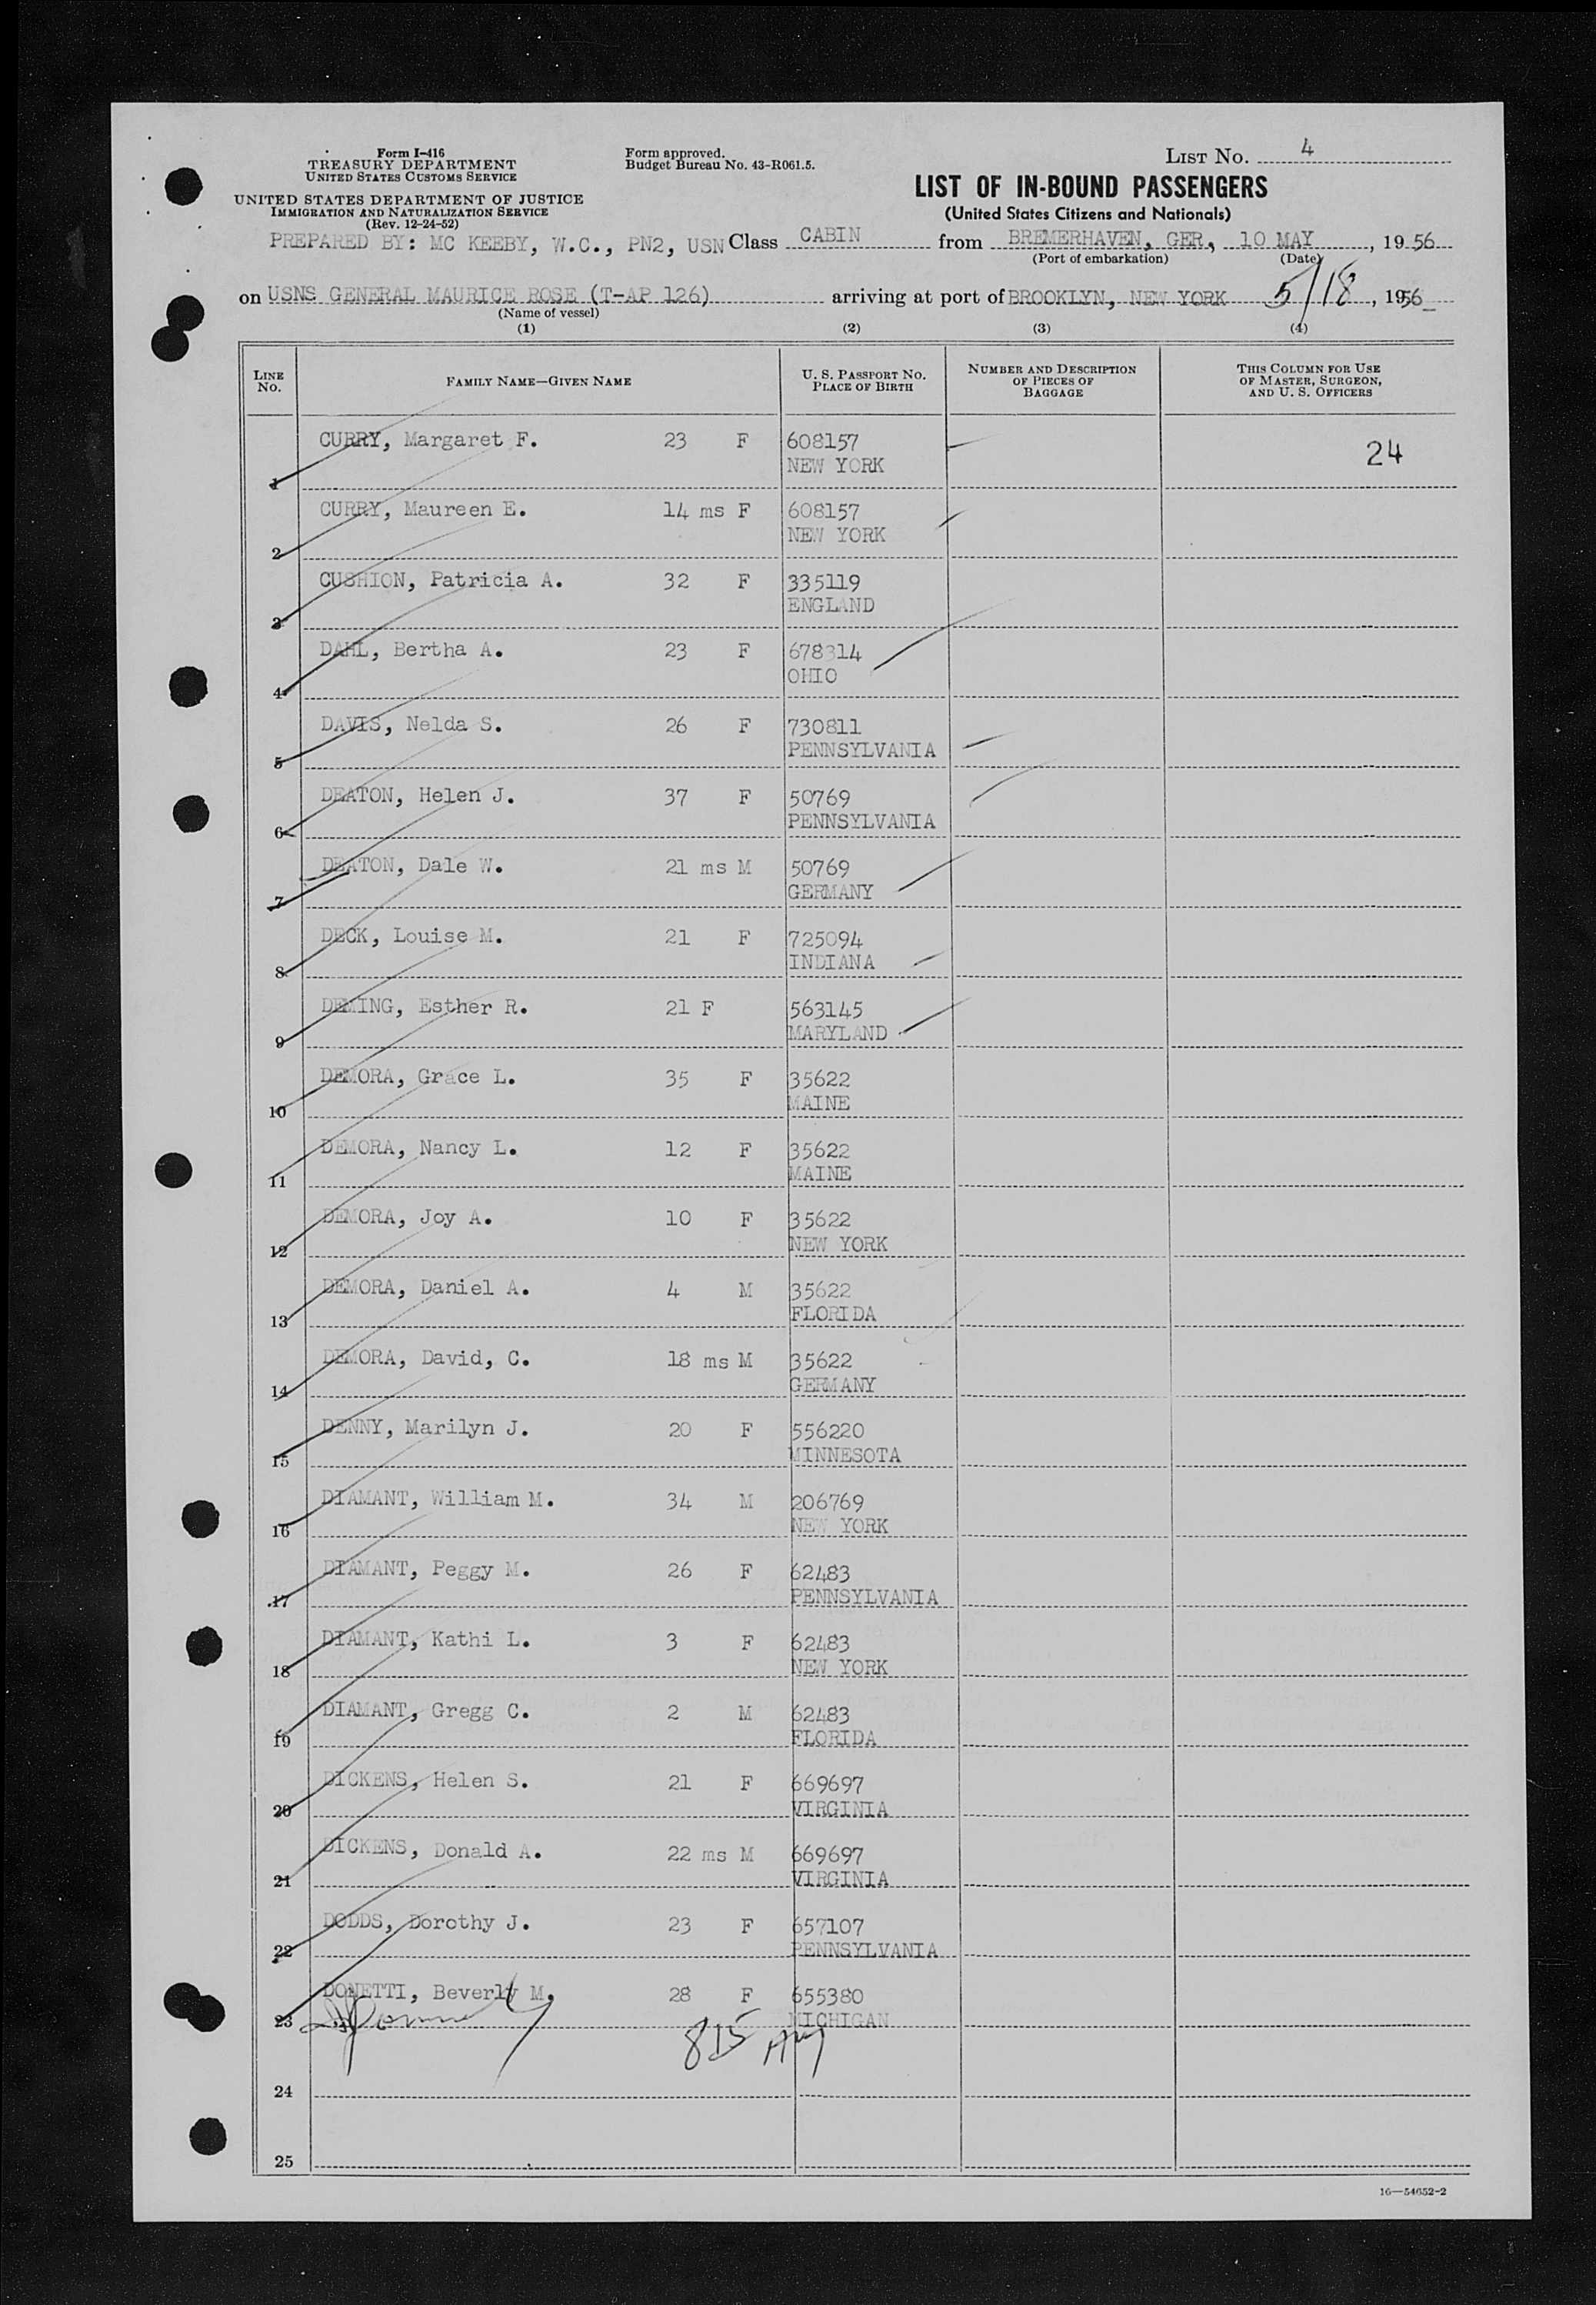 Form I-416
TREASURY DEPARTMENT
UNITED STATES CUSTOMS SERVICE
UNITED STATES DEPARTMENT OF JUSTICE
IMMIGRATION AND NATURALIZATION SERVICE
(Rev. 12-24-52)
Form approved.
Budget Bureau No. 43-R061.5.
LIST NO. 4
LIST OF IN-BOUND PASSENGERS
(United States Citizens and Nationals)
PREPARED BY: MC KEEBY, W.C., PN2, USN Class CABIN from BREMERHAVEN, GER, 10 MAY, 1956
(Port of embarkation) (Date)
on USNS GENERAL MAURICE ROSE (T-AP 126) arriving at port of BROOKLYN, NEW YORK 5/18, 1956
(Name of vessel)
(1) (2) (3) (4)
LINE NO. FAMILY NAME—GIVEN NAME U. S. PASSPORT NO. PLACE OF BIRTH NUMBER AND DESCRIPTION OF PIECES OF BAGGAGE THIS COLUMN FOR USE OF MASTER, SURGEON, AND U. S. OFFICERS
CURRY, Margaret F. 23 F 608157 24
1 NEW YORK
CURRY, Maureen E. 14 ms F 608157
2 NEW YORK
CUSHION, Patricia A. 32 F 335119
3 ENGLAND
DAHL, Bertha A. 23 F 678314
4 OHIO
DAVIS, Nelda S. 26 F 730811
5 PENNSYLVANIA
DEATON, Helen J. 37 F 50769
6 PENNSYLVANIA
DEATON, Dale W. 21 ms M 50769
7 GERMANY
DECK, Louise M. 21 F 725094
8 INDIANA
DEMING, Esther R. 21 F 563145
9 MARYLAND
DEMORA, Grace L. 35 F 35622
10 MAINE
DEMORA, Nancy L. 12 F 35622
11 MAINE
DEMORA, Joy A. 10 F 35622
12 NEW YORK
DEMORA, Daniel A. 4 M 35622
13 FLORIDA
DEMORA, David, C. 18 ms M 35622
14 GERMANY
DENNY, Marilyn J. 20 F 556220
15 MINNESOTA
DIAMANT, William M. 34 M 206769
16 NEW YORK
DIAMANT, Peggy M. 26 F 62483
17 PENNSYLVANIA
DIAMANT, Kathi L. 3 F 62483
18 NEW YORK
DIAMANT, Gregg C. 2 M 62483
19 FLORIDA
DICKENS, Helen S. 21 F 669697
20 VIRGINIA
DICKENS, Donald A. 22 ms M 669697
21 VIRGINIA
DODDS, Dorothy J. 23 F 657107
22 PENNSYLVANIA
DONETTI, Beverly M. 28 F 655380
23 MICHIGAN
815
24
25
16—54652-2